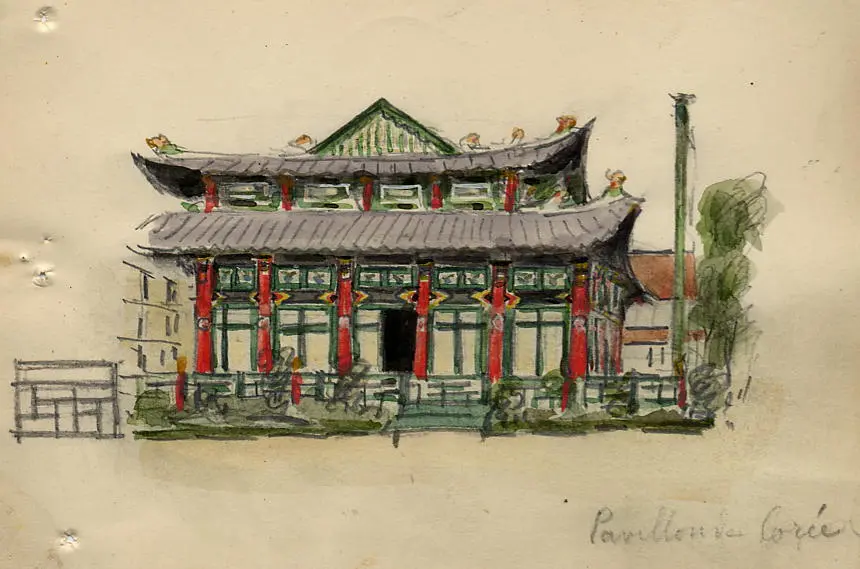 Pavillon de Corée